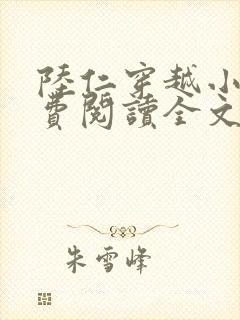 陸仁穿越小
費閱讀全文
朱雪峰